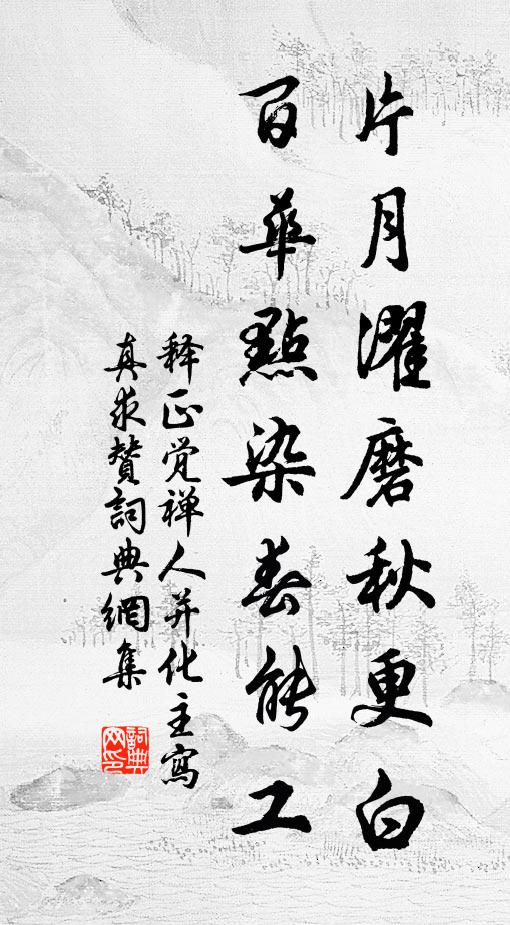 片月濯磨秋更白
百華點染春能工
释正觉禅人并化主寫
真求贊詞典網集
詞典網印